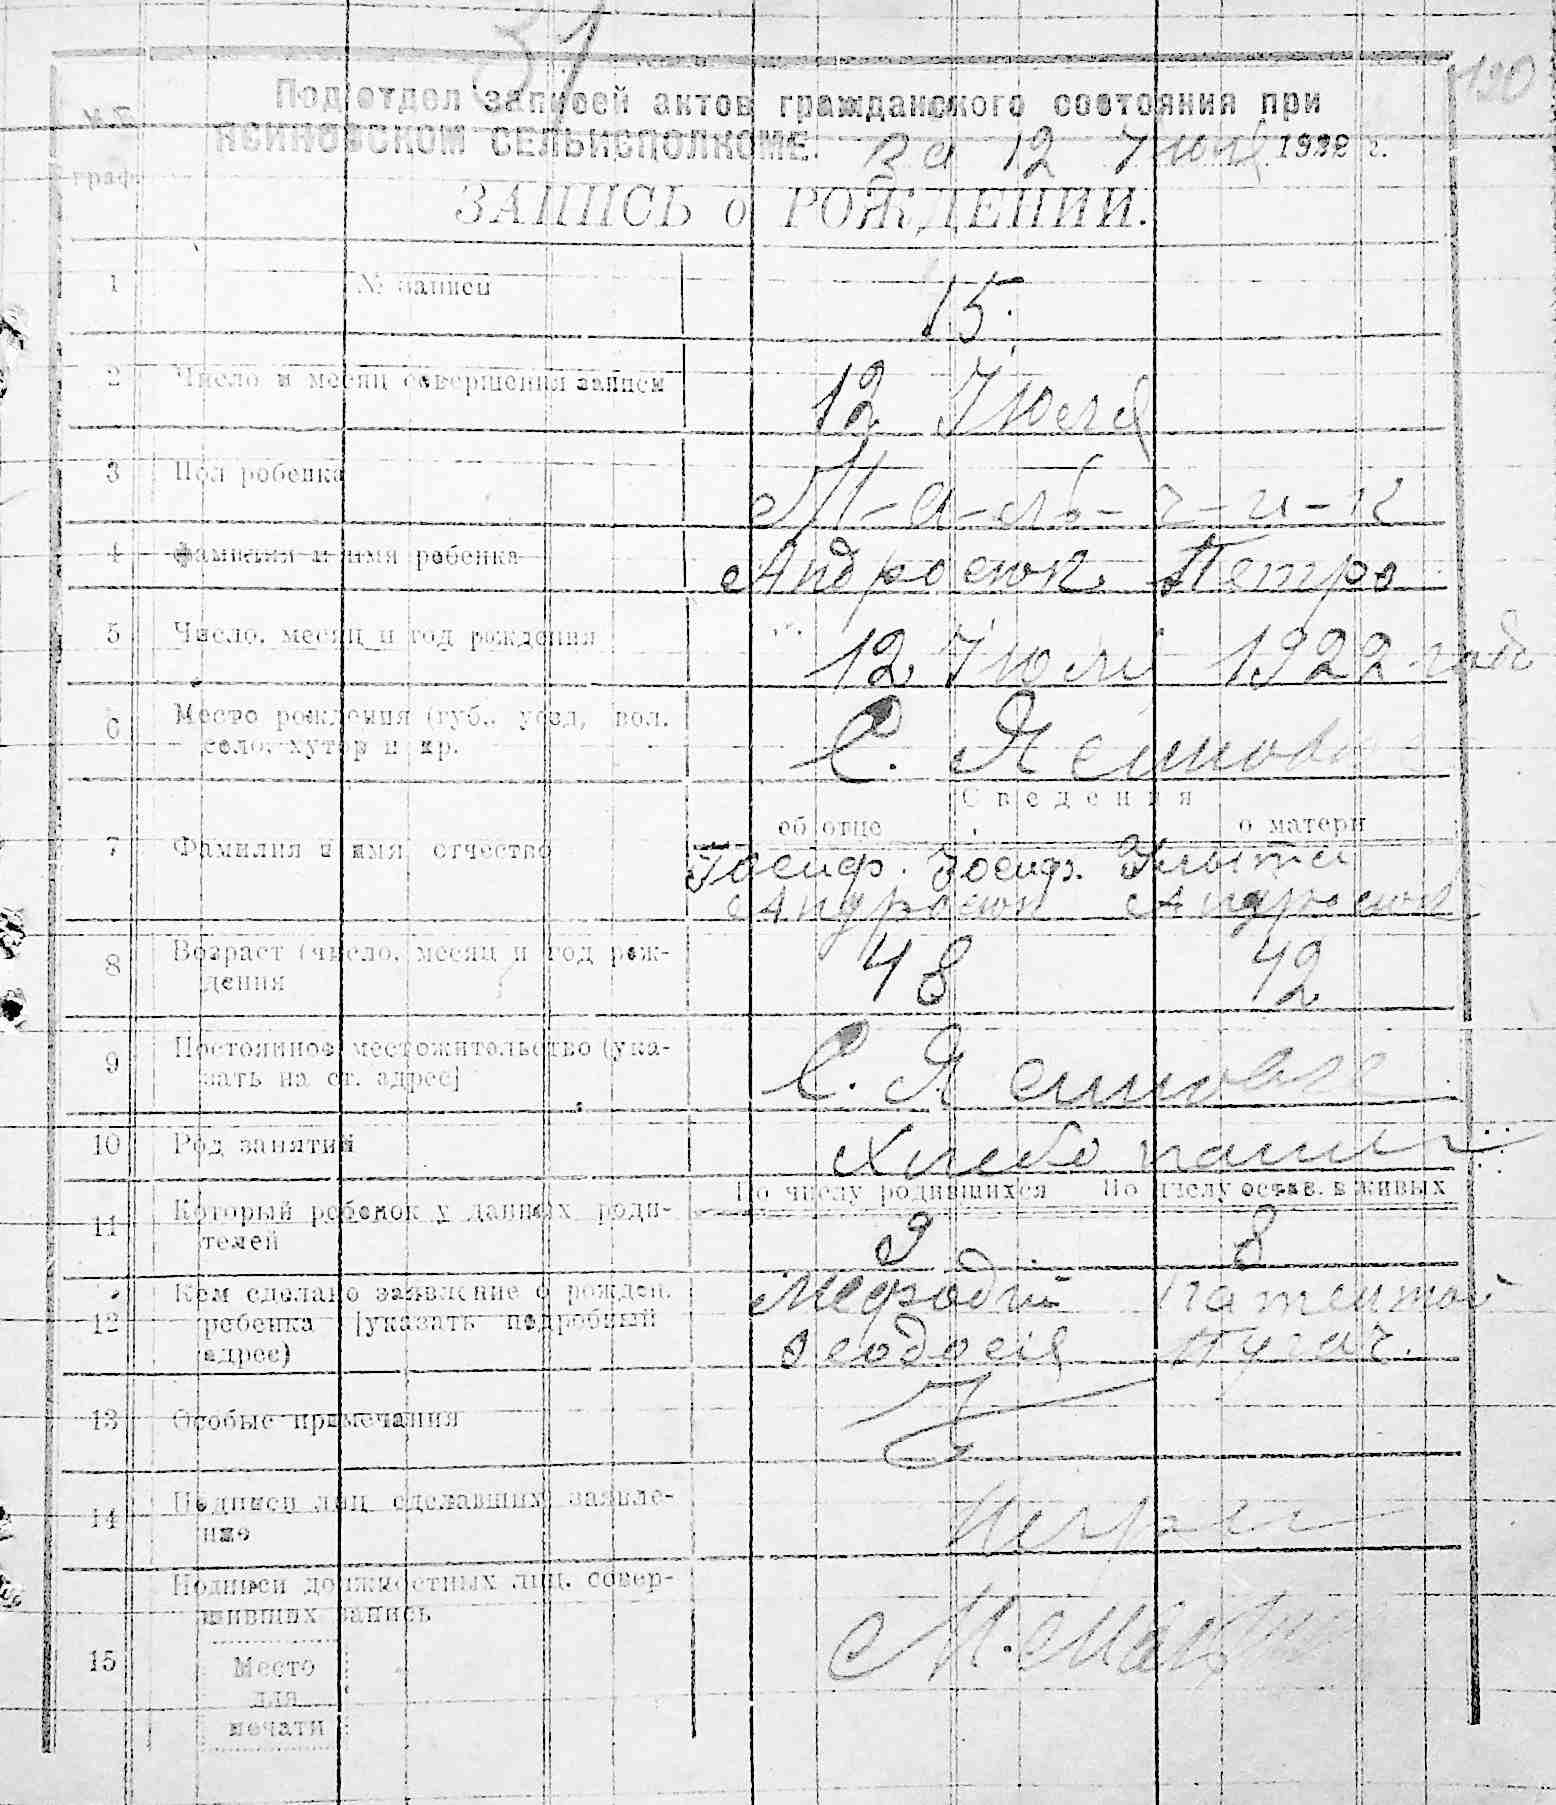 31
120
Подотдел записей актов гражданского состояния при
ЯСИНОВСКОМ СЕЛЬИСПОЛКОМЕ. За 12 Июля 1922 г.
граф.
ЗАПИСЬ о РОЖДЕНИИ.
1 № записи 15.
2 Число и месяц совершения записи 12 Июля
3 Пол ребенка М-а-ль-ч-и-к
4 Фамилия и имя ребенка Андросюк Петро
5 Число, месяц и год рождения 12 Июля 1922 года
6 Место рождения (губ., уезд, вол.
село, хутор и пр. С. Ясинова
Сведения
об отце о матери
7 Фамилия и имя отчество Иосиф. Иосиф.
Андросюк Андросюк
8 Возраст (число, месяц и год рож-
дения 48 42
9 Постоянное местожительство (ука-
зать на ст. адрес] С. Ясинова
10 Род занятий Хлебопашец
По числу родившихся По числу остав. в живых
11 Который ребенок у данных роди-
телей 9 8
12 Кем сделано заявление о рожден.
ребенка [указать подробный
адрес)
Мефодий
Феодосия Пугач.
13 Особые примечания
14 Подписи лиц сделавших заявле-
ние
15 Подписи должностных лиц, совер-
шивших запись
Место
для
печати